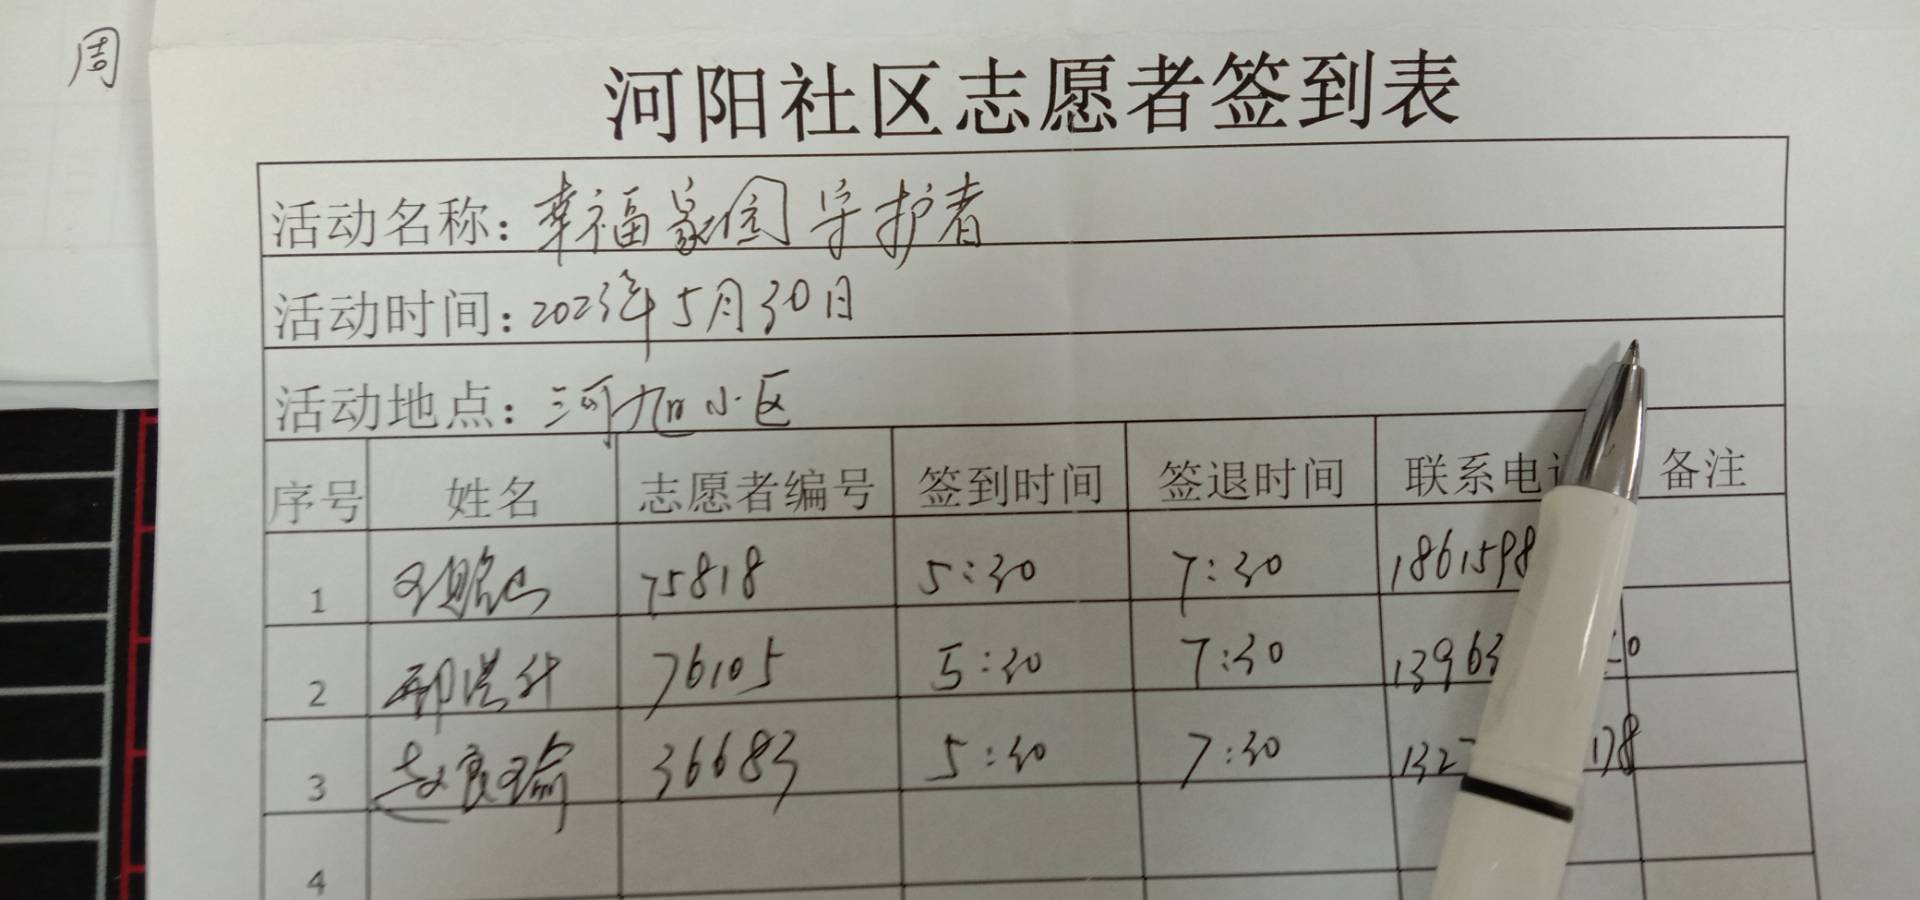 周
河阳社区志愿者签到表
活动名称：幸福家园守护者
活动时间：2023年5月30日
活动地点：河旭小区
序号 姓名 志愿者编号 签到时间 签退时间 联系电 备注
1 75818 5:30 7:30 1861598
2 76105 5:30 7:30 13963
3 赵良瑜 36683 5:30 7:30 1327 178
4